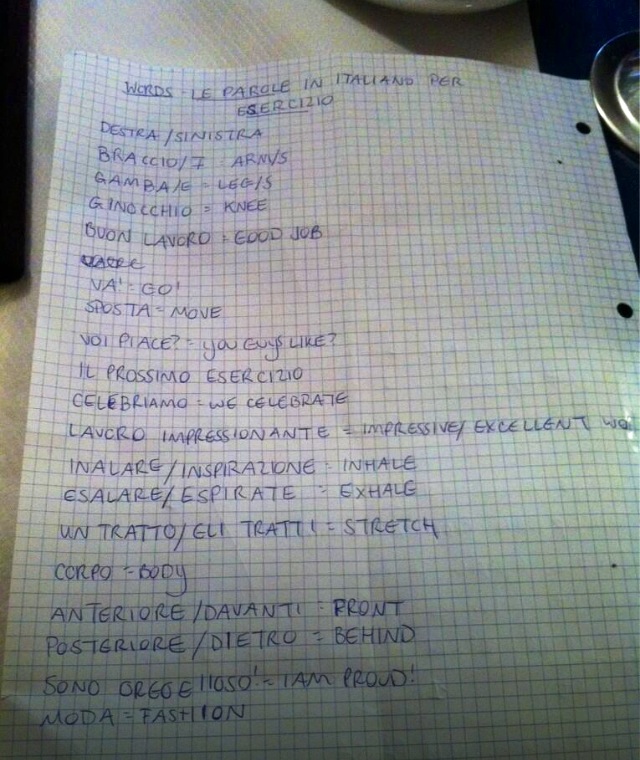 WORDS - LE PAROLE IN ITALIANO PER
ESERCIZIO
DESTRA/SINISTRA
BRACCIO/I = ARM/S
GAMBA/E = LEG/S
GINOCCHIO = KNEE
BUON LAVORO = GOOD JOB
VA! = GO!
SPOSTA = MOVE
VOI PIACE? = YOU GUYS LIKE?
IL PROSSIMO ESERCIZIO
CELEBRIAMO = WE CELEBRATE
LAVORO IMPRESSIONANTE = IMPRESSIVE/EXCELLENT WO
INALARE/INSPIRAZIONE = INHALE
ESALARE/ESPIRATE = EXHALE
UN TRATTO/GLI TRATTI = STRETCH
CORPO = BODY
ANTERIORE/DAVANTI = FRONT
POSTERIORE/DIETRO = BEHIND
SONO OREGELIOSO! = I AM PROUD!
MODA = FASHION